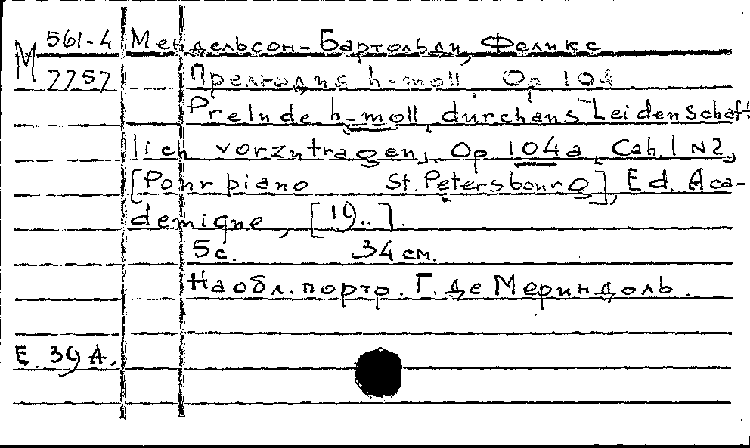 М 561-4 Мендельсон-Бартольди, Феликс
7757 Прелюдия h-moll. Op 104
Prelude h-moll, durchaus Leidenschaft
lich vorzutragen. Op 104a, Cah. I N2,
[Pour piano St. Petersbourg], Ed. Aca-
demique, [19..].
5 с. 34 см.
На обл. портр. Г. де Мериндоль.
Е. 39 А.